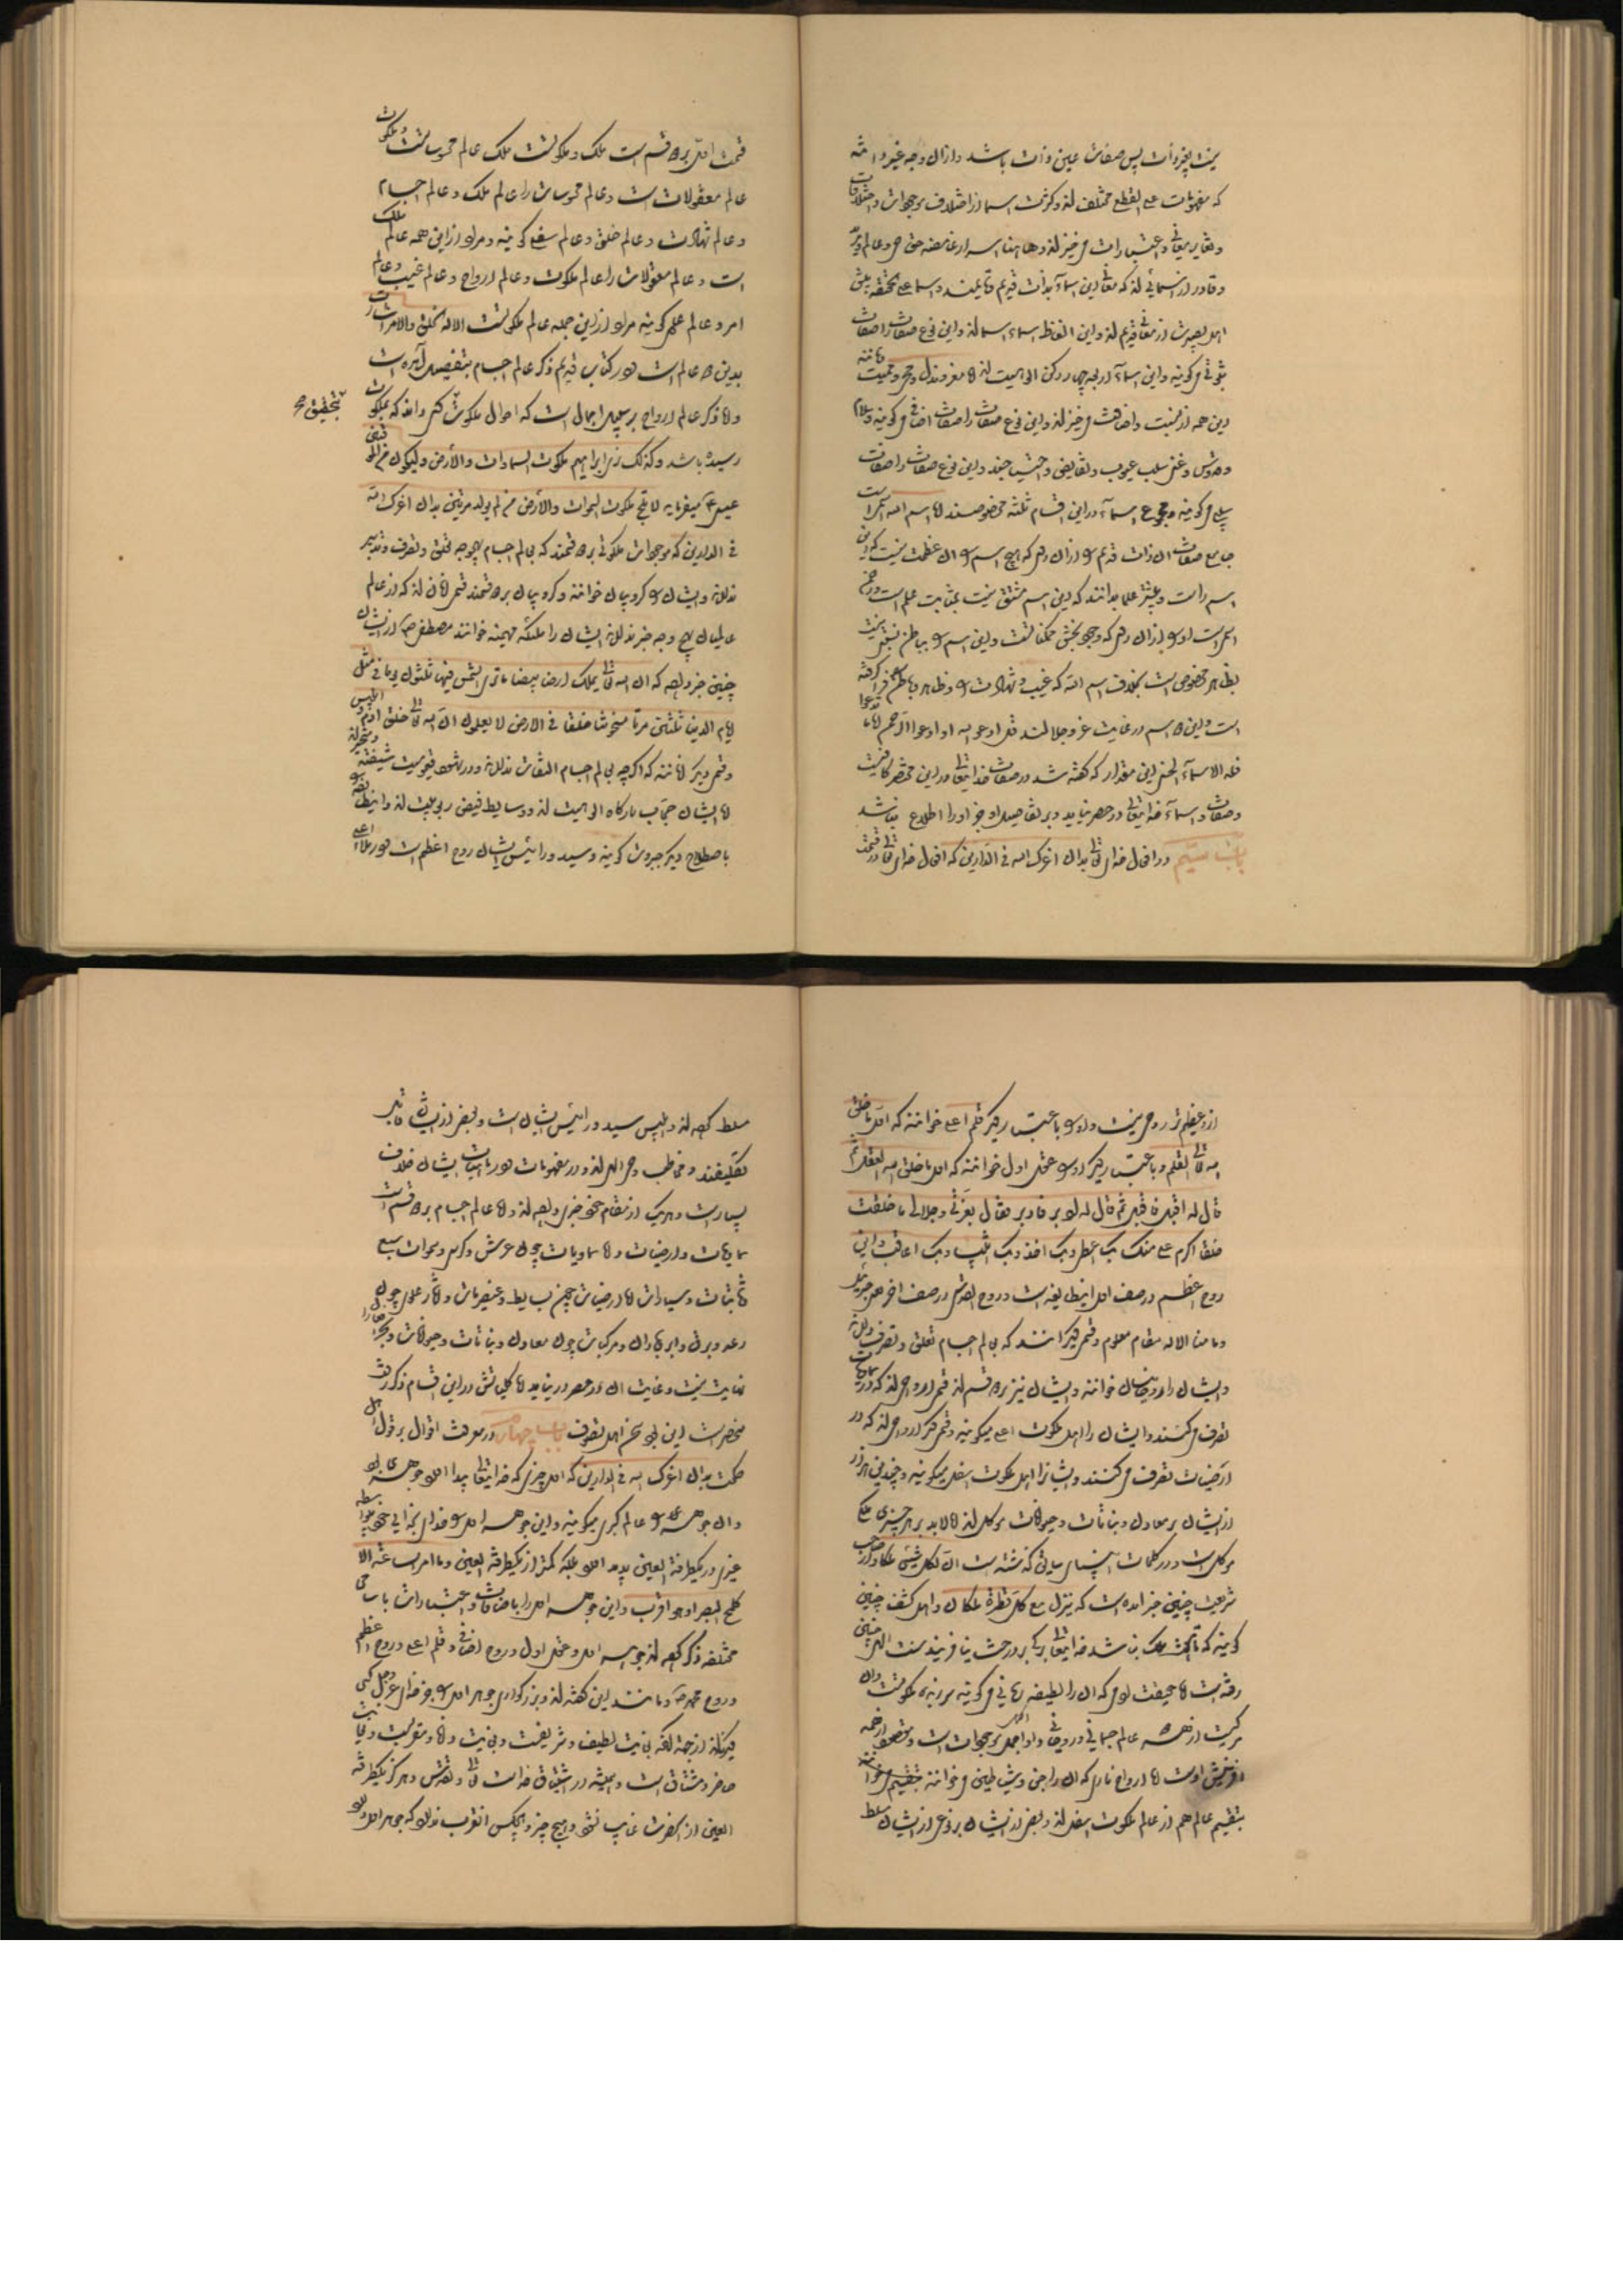 نیست بغیر ذات پس صفات عین ذات باشد و از ان وجه غیر ذات
که مفهومات علی القطع مختلف‌اند و کثرت اسما از اختلاف موجودات و اختلافات
و تغایر معانی و اعتبارات می‌خیزند و هاهنا اسرار غامضه حی و عالم و مرید
و قادر از اسمائی‌اند که معانی این اسماء بذات قدیم قایمند و اسما علی الحقیقه پیش
اهل بصیرت از معانی قدیم‌اند و این الفاظ اسماء اسمااند و این نوع صفات را صفات
ثبوتی می‌گویند و این اسماء اربعه چهار رکن الوهیت‌اند اما معز و مذل و محیی و ممیت
این همه از نسبت و اضافت می‌خیزند و این نوع صفات را صفات اضافی می‌گویند و سلام
و قدوس و غنی سلب عیوب و نقایص و احتیاج‌ند و این نوع صفات را صفات
سلبی می‌گویند و مجموع اسماء در این اقسام ثلثه مخصوصند اما اسم الله
جامع صفات ان ذات قدیم و از ان که هیچ اسم را ان عظمت نیست که این
اسم راست و بیشتر علما بدانند که این اسم مشتق نیست بمثابت علم است
بظاهر مخصوص است بخلاف اسم الله که غیب و شهادت و ظاهر و باطن فرا گرفته
است و این اسم در غایت عز و جلالند قل ادعوا الله او ادعوا الرحمن ایا ما تدعوا
فله الاسماء الحسنی این مقدار که گفته شد در صفات خدایتعالی در این مختصر کافیست
و صفات و اسماء خدایتعالی در حصر نیاید و بر تفاصیل او جز او را اطلاع نباشد
باب سیم در افعال خدای تعالی بدان اعزک الله فی الدارین که افعال خدای تعالی در قسمت
قسمت اول بر دو قسم است ملک و ملکوتست ملک عالم محسوساتست و ملکوت
عالم معقولات است و عالم محسوسات را عالم ملک و عالم اجسام
و عالم شهادت و عالم خلق و عالم سفلی گویند و مراد از این همه عالم ملک
است و عالم معقولات را عالم ملکوت و عالم ارواح و عالم غیب و عالم
امر و عالم علوی گویند مراد از این جمله عالم ملکوتست الا له الخلق والامر اشارت
بدین دو عالم است و در کتاب قدیم ذکر عالم اجسام بتفصیل آمده است
و اما ذکر عالم ارواح بر سبیل اجمال است که احوال ملکوت کسی داند که بملکوت
بتحقیق صح
رسیده باشد و کذلک نری ابراهیم ملکوت السموات والأرض ولیکون من الموقنین
عیسی ع میفرماید لا یلج ملکوت السموات والأرض من لم یولد مرتین بدان اعزک الله
فی الدارین که موجودات ملکوتی بر دو قسمند که بعالم اجسام بهیچ وجه تعلق و تصرف و تدبیر
ندارند و ایشان را کروبیان خوانند و کروبیان بر دو قسمند قسمی انان‌اند که از عالم
عالمیان بهیچ وجه خبر ندارند ایشان را ملئکه مهیمنه خوانند مصطفی ص از ایشان
چنین خبر داده که ان الله تعالی یملک ارضا بیضاء تری الشمس فیها ثلثون یوما فی مثل
ایام الدنیا ثلثین مرتا مشحونتا خلقا فی الارض لا یعلمون ان الله تعالی خلق ادم و ابلیس
و قسمی دیگر انانند که اگر چه بعالم اجسام التفات ندارند و در شهود قیومیت شیفته و متحیرند
اما ایشان حجاب بارگاه الوهیت‌اند و وسایط فیض ربوبیت‌اند و این طایفه
باصطلاح دیگر جبروت گویند و سید و رائیس ایشان روح اعظم است و در ملاء اعلی
از او عظیم‌تر روحی نیست و او را باعتبار دیگر قلم اعلی خوانند که اول ما خلق
الله تعالی القلم و باعتبار دیگر او را عقل اول خوانند که اول ما خلق الله العقل ثم
قال له اقبل فاقبل ثم قال له ادبر فادبر فقال بعزتی و جلالی ما خلقت
خلقا اکرم علی منک بک اعطی و بک اخذ و بک اثیب و بک اعاقب و این
روح اعظم در صف اول این طایفه است و روح القدس در صف اخر هی جبریل
و ما منا الا له مقام معلوم و قسم دیگر انند که بعالم اجسام تعلق و تصرف دارند
و ایشان را روحانیان خوانند و ایشان نیز بر دو قسم‌اند قسمی ارواحی‌اند که در سماویات
تصرف می‌کنند و ایشان را اهل ملکوت اعلی میگویند و قسم دیگر ارواحی‌اند که در
ارضیات تصرف می‌کنند و ایشانرا اهل ملکوت سفلی میگویند و چندین هزار
از ایشان بر معادن و نباتات و حیوانات موکل‌اند لابد بر هر چیزی ملکی
موکل است و در کلمات انبیای سابق گذشته است ان لکل شیئ ملکا و صاحب
شریعت چنین خبر داده است که ینزل مع کل قطرة ملک و اهل کشف چنین
گویند که تا هفت ملک نباشد خدایتعالی برگی بر درخت نیافریند سنت الهی چنین
رفته است اما حقیقت ادمی که ان را لطیفه ربانی می‌گویند سر برده ملکوتست و ان
مرکب است از همه عالم جسمانی و روحانی و او اکمل موجودات است و مقصود از همه
افرینش اوست اما ارواح ناری که ان را جن و شیاطین می‌خوانند
بتقسیم عالم هم از عالم ملکوت سفلی‌اند و بعضی از ایشان بر نوع از ایشان مسلط
مسلط کرده‌اند و ابلیس سید و رائیس ایشان است و بعضی از ایشان قابل
تکلیفند و مخاطب وحی الهی‌اند و در مفهومات و در ماهیات ایشان خلاف
بسیار است و هر یک از مقام خود خبری داده‌اند و اما عالم اجسام بر دو قسم است
سماویات و ارضیات و اما سماویات چون عرش و کرسی و سموات سبع
ثابتات و سیارات اما ارضیات چون بسایط و عنصریات و اثار علوی چون
رعد و برق و ابر و باران و مرکبات چون معادن و نباتات و حیوانات و بحر را
نهایت نیست و غایت ان در حصر در نیاید اما کلیاتش در این اقسام ذکر رفت
منحصر است این بود سخن اهل تصوف باب چهارم در معرفت اقوال بر قول اهل
حکمت بدان اعزک الله فی الدارین که اول چیزی که خدایتعالی پیدا اورد جوهری بود
و ان جوهر را عالم کبری میگویند و این جوهر اول را خدای تعالی بخودی خود بیواسطه
غیری در یکطرفة العین پدید اورد بلکه کمتر از یکطرفة العین و ما امر الساعة الا
کلمح البصر او هو اقرب و این جوهر اول را باضافات و اعتبارات باسامی
مختلفه ذکر کرده‌اند جوهر اول و عقل اول و روح اضافی و قلم اعلی و روح اعظم
و روح محمد ص و مانند این گفته‌اند و بزرگواری جوهر اول را جز خدای عز و جل کسی
حاضر و مشتاق است و همیشه در اشتیاق خداست تعالی و تقدس و هرگز یکطرفة
العین از انحضرت غایب نشود و هیچ چیز و هیچکس انقرب ندارد که جوهر اول دارد